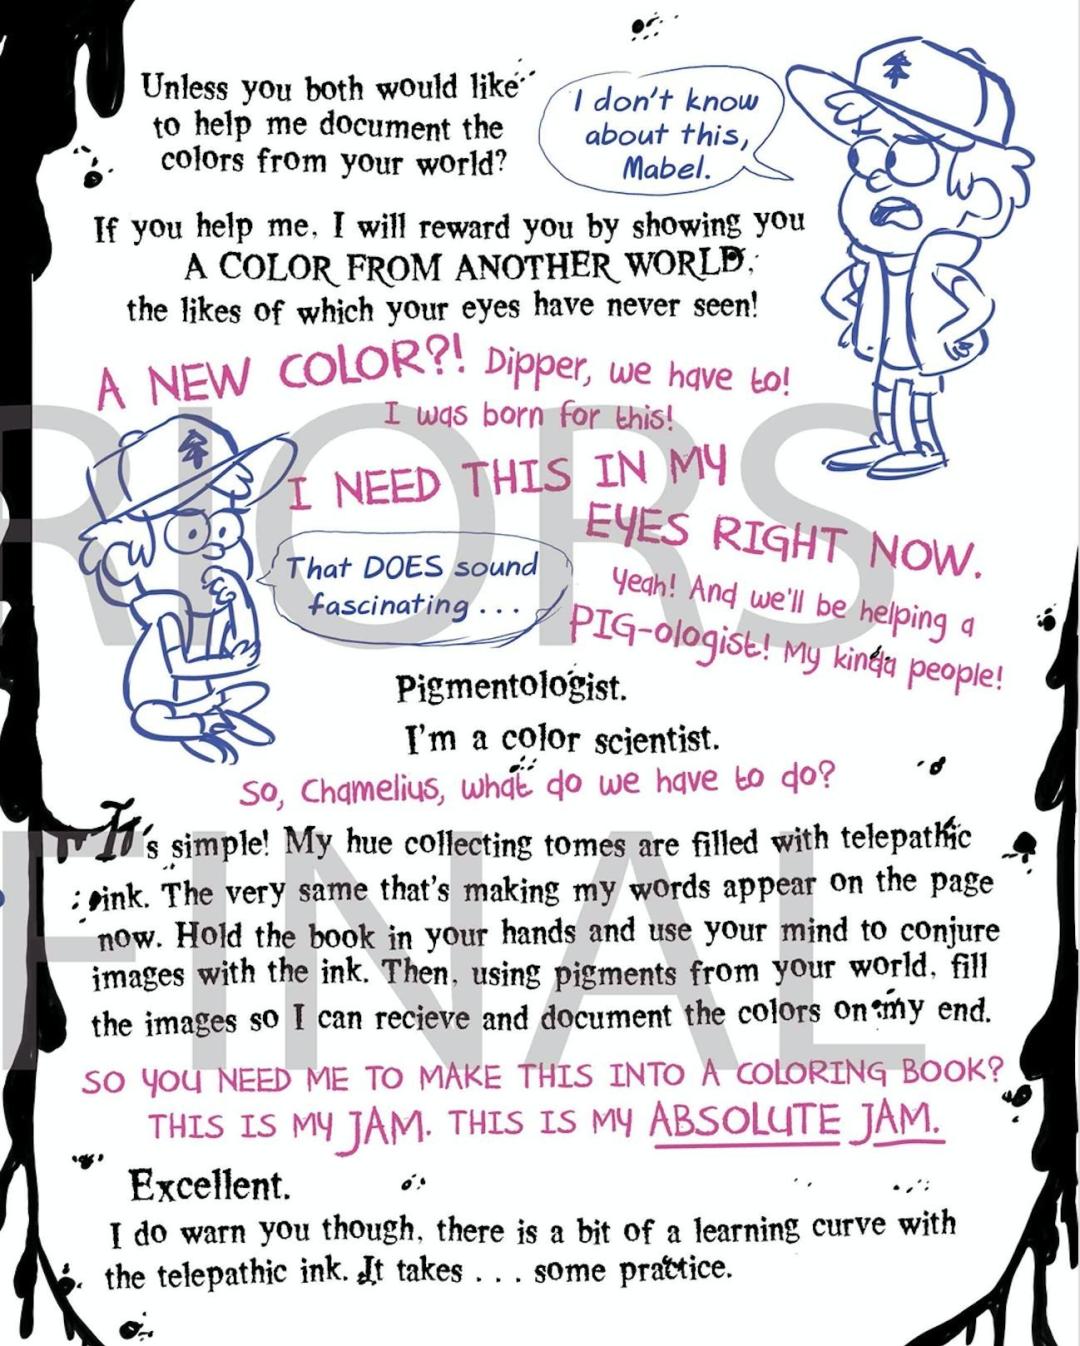 Unless you both would like
to help me document the
colors from your world?
I don't know
about this,
Mabel.
If you help me, I will reward you by showing you
A COLOR FROM ANOTHER WORLD,
the likes of which your eyes have never seen!
A NEW COLOR?! Dipper, we have to!
I was born for this!
I NEED THIS IN MY
EYES RIGHT NOW.
That DOES sound
fascinating . . .
Yeah! And we'll be helping a
PIG-ologist! My kinda people!
Pigmentologist.
I'm a color scientist.
So, Chamelius, what do we have to do?
It's simple! My hue collecting tomes are filled with telepathic
ink. The very same that's making my words appear on the page
now. Hold the book in your hands and use your mind to conjure
images with the ink. Then, using pigments from your world, fill
the images so I can recieve and document the colors on my end.
SO YOU NEED ME TO MAKE THIS INTO A COLORING BOOK?
THIS IS MY JAM. THIS IS MY ABSOLUTE JAM.
Excellent.
I do warn you though, there is a bit of a learning curve with
the telepathic ink. It takes . . . some practice.
RIORS
FINAL